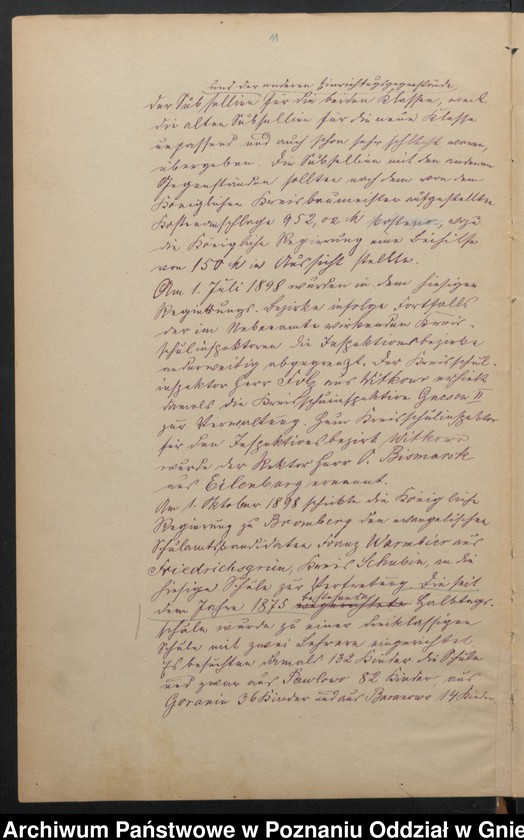 11
und der anderen Einrichtungsgegenstände
der Subsellien für die beiden Klassen, weil
die alten Subsellien für die neue Klasse
unpassend und auch schon sehr schlecht waren,
übergeben. Die Subsellien mit den anderen
Gegenständen sollten nach dem von dem
Königlichen Kreisbaumeister aufgestellten
Kostenanschlage 952,02 M kosten, wozu
die Königliche Regierung eine Beihilfe
von 150 M in Aussicht stellte.
Am 1. Juli 1898 wurden in dem hiesigen
Regierungs-Bezirke infolge Fortfalls
der im Nebenamte wirkenden Kreis-
schulinspektoren die Inspektionsbezirke
anderweitig abgegrenzt. Der Kreisschul-
inspektor Herr Folz aus Witkowo erhielt
damals die Kreisschulinspektion Gnesen II
zur Verwaltung. Zum Kreisschulinspektor
für den Inspektionsbezirk Witkowo
wurde der Rektor Herr O. Bismarck
aus Eilenburg ernannt.
Am 1. Oktober 1898 schickte die Königliche
Regierung zu Bromberg den evangelischen
Schulamtskandidaten Franz Warmbier aus
Friedrichsgrün, Kreis Schubin, an die
hiesige Schule zur Vertretung. Die seit
bestehende
dem Jahre 1875 eingerichtete Halbtags-
schule wurde zu einer dreiklassigen
Schule mit zwei Lehrern eingerichtet.
Es besuchten damals 132 Kinder die Schule
und zwar aus Pawlowo 82 Kinder, aus
Goranin 36 Kinder und aus Baranowo 14 Kinder.
Archiwum Państwowe w Poznaniu Oddział w Gnie